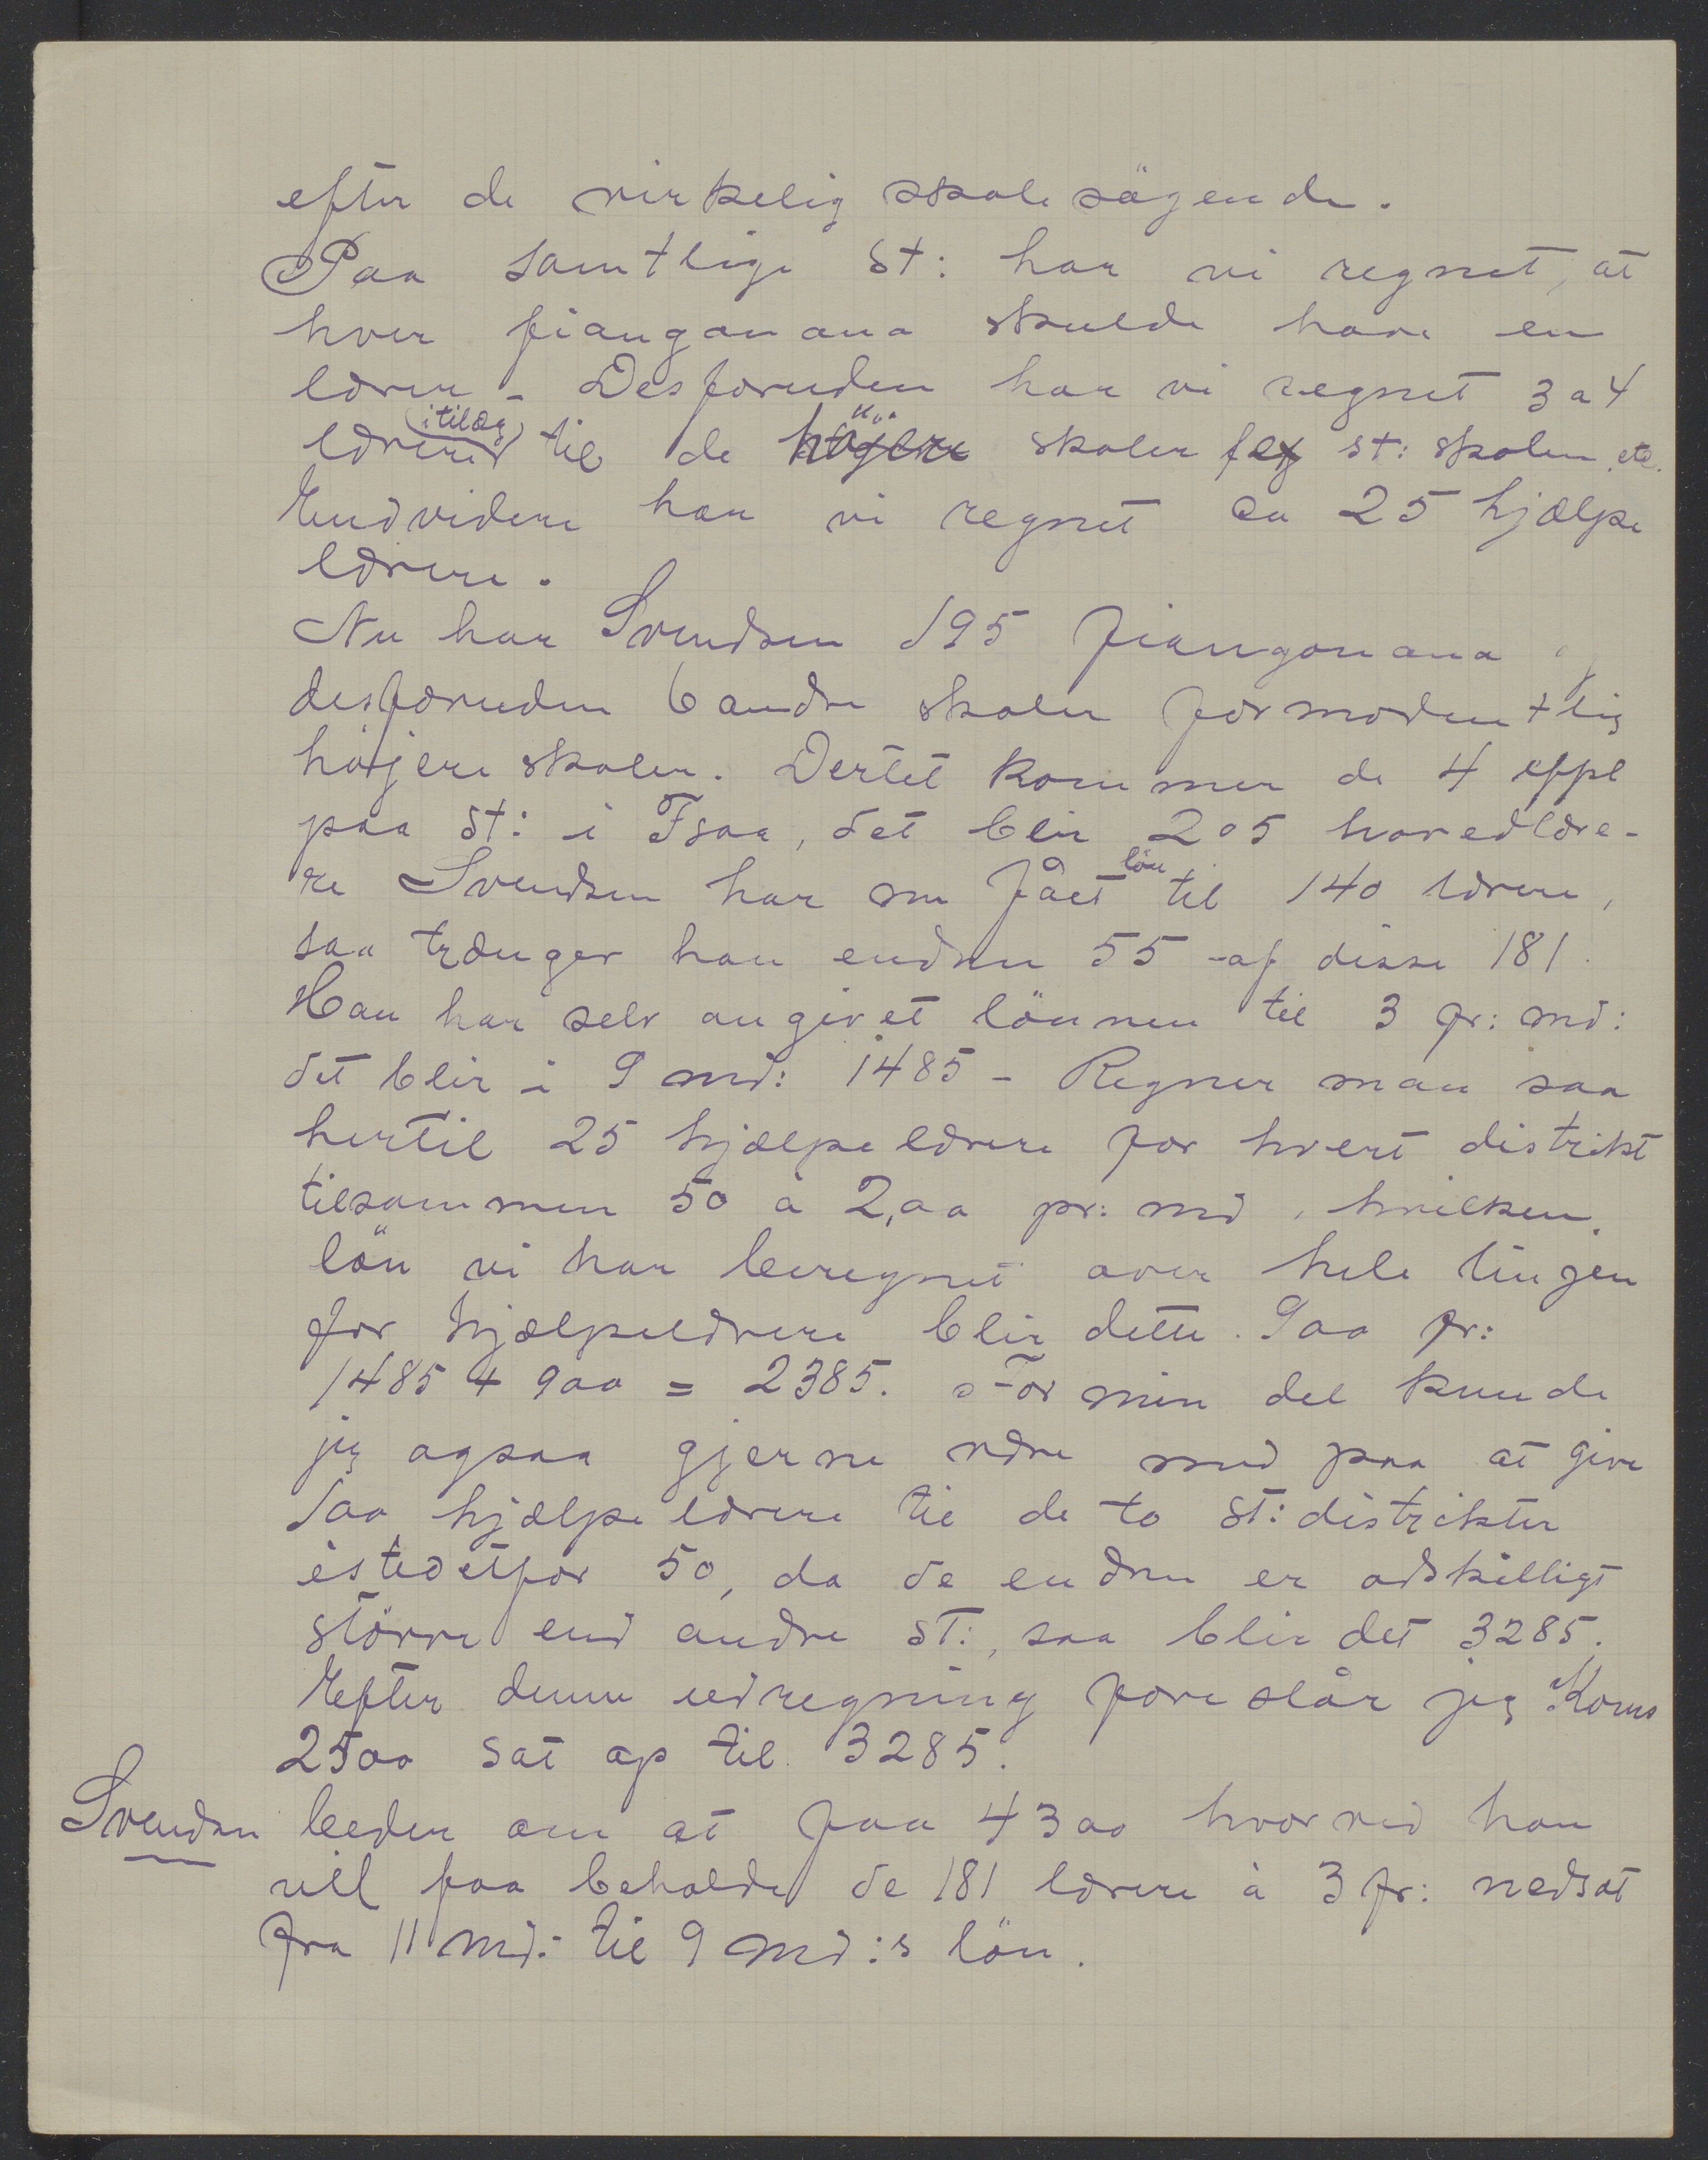 efter de virkelig skolesögende.
Paa samtlige St: har vi regnet, at
hver fiangonana skulde have en
lærer – Desforuden har vi regnet 3 a 4
lærere i tillæg til de högere skoler f ex st: skolen etc.
Endvidere har vi regnet en 25 hjælpe
lærere.
Nu har Svendsen 195 fiangonana og
desforuden 6 andre skoler formodentlig
höjere skoler. Dertil kommer de 4 eppl
paa St: i Fsoa, det blir 205 hovedlære-
re Svendsen har nu fået lön til 140 lærere,
saa trænger han endnu 55 af disse 181.
Han har selv angivet lönnen til 3 fr: md:
det blir i 9 md: 1485 – Regner man saa
hertil 25 hjælpelærere for hvert distrikt
tilsammen 50 à 2,00 pr: md, hvilken
lön vi har beregnet over hele linjen
for hjælpelærere blir dette 900 fr:
1485 + 900 = 2385. For min del kunde
jeg ogsaa gjerne være med paa at give
100 hjælpelærere til de to St: distrikter
istedetfor 50, da de endnu er adskilligt
större end andre St:, saa blir det 3285.
Efter denne udregning foreslår jeg Koms
2500 sat op til 3285.
Svendsen beder om at faa 4300 hvorved han
vil faa beholde de 181 lærere à 3 fr: nedsat
fra 11 md: til 9 md:s lön.